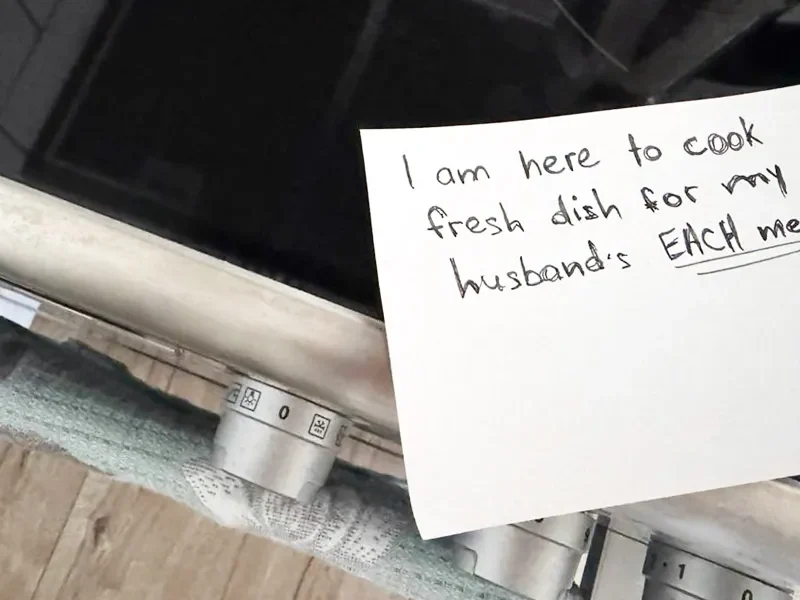 I am here to cook
fresh dish for my
husband's EACH me
0
0
1 0